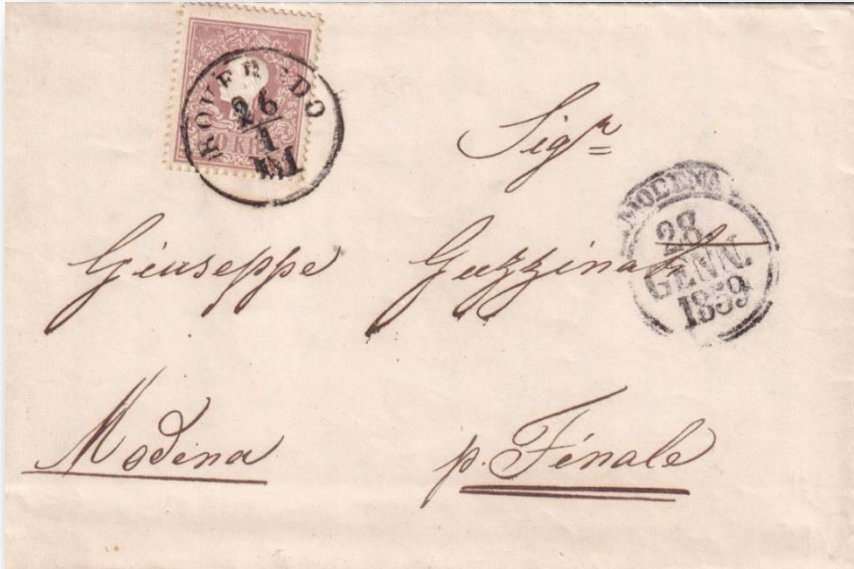 ROVEREDO
26
1
Sig.r
MODENA
28.
GENN.
1859
Giuseppe
Modena p. Finale